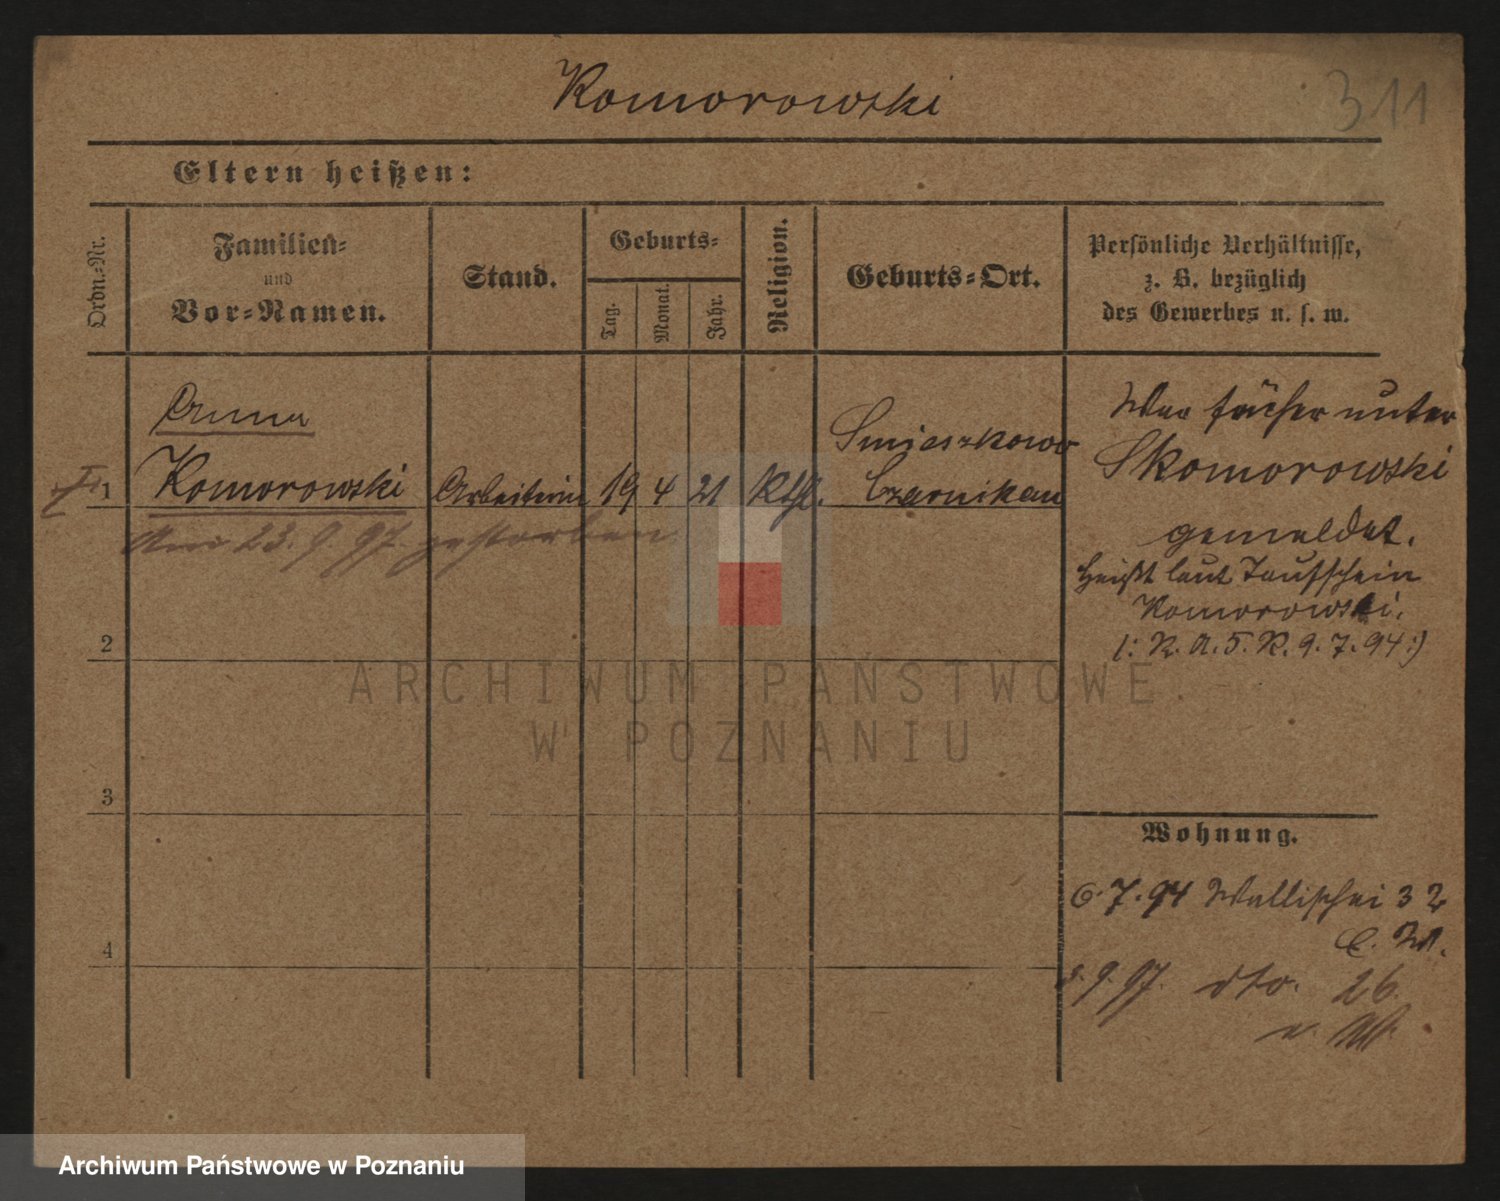 Komorowski
311
Eltern heißen:
Ordn.-Nr.
Familien-
und
Vor-Namen.
Stand.
Geburts-
Tag.
Monat.
Jahr.
Religion.
Geburts-Ort.
Persönliche Verhältnisse,
z. B. bezüglich
des Gewerbes u. s. w.
Anna
1 Komorowski Arbeiterin 19 4 21 Kthl.
Smieszkowo
Czarnikau
Am 23.9.97. gestorben
War früher unter
Skomorowski
gemeldet.
Heißt laut Taufschein
Komorowski.
(: R. A. 5. R. 9. 7. 94 :)
2
3
4
Wohnung.
6.7.94 Wallischei 32
9.97. dto. 26
ARCHIWUM PAŃSTWOWE
W POZNANIU
Archiwum Państwowe w Poznaniu